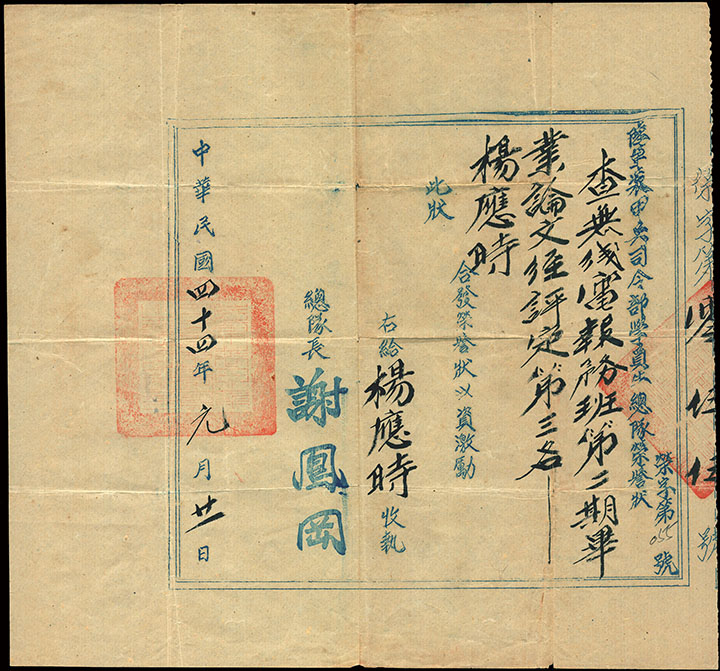 榮字第
零伍伍
號
陸軍裝甲兵司令部學員生總隊榮譽狀
榮字第055號
查無线電報務班第二期畢
業論文經評定第三名
楊應時
合發榮譽狀以資激勵
此狀
右給楊應時收執
總隊長謝鳳岡
中華民國四十四年元月廿日